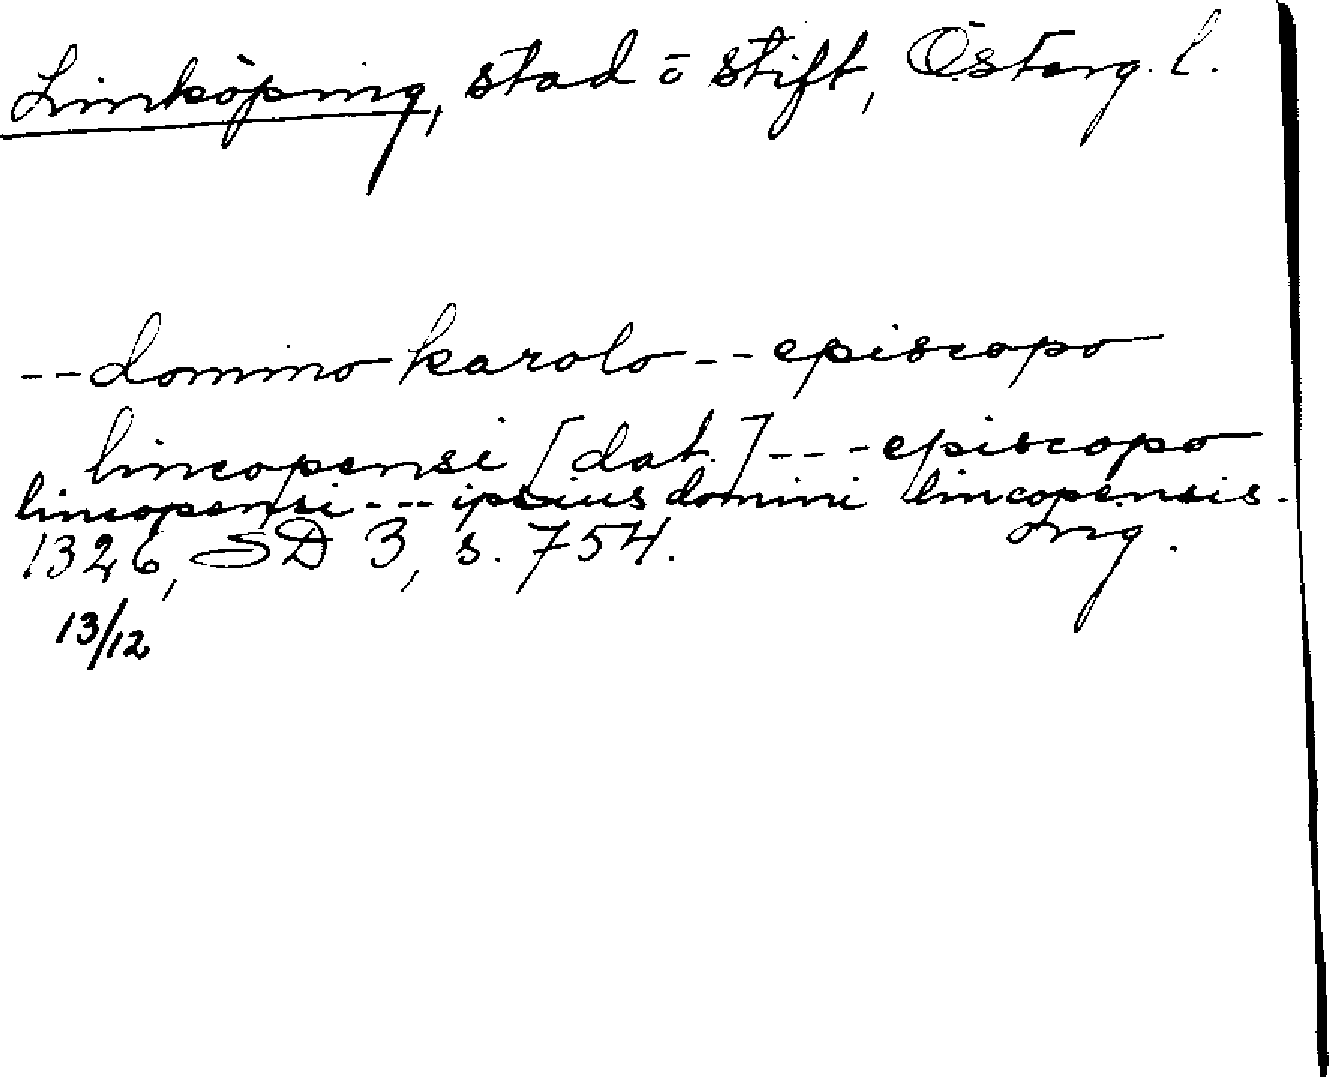 Linköping, stad ō stift, Österg. l.
-- domino karolo -- episcopo
lincopensi [dat.] --- episcopo
lincopensi --- ipsius domini lincopensis.
1326, SD 3, s. 754. Irg.
13/12